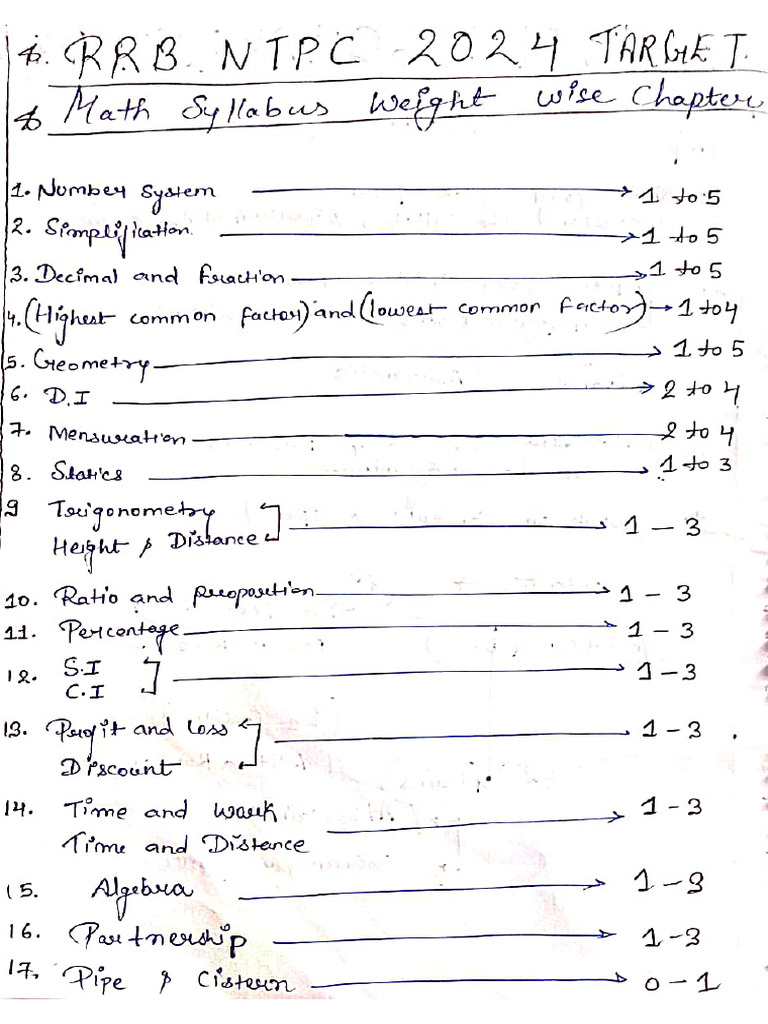 RRB NTPC 2024 TARGET
Math Syllabus Weight wise Chapter
1. Number System → 1 to 5
2. Simplification → 1 to 5
3. Decimal and fraction → 1 to 5
4. (Highest common factor) and (lowest common factor) → 1 to 4
5. Geometry → 1 to 5
6. D.I → 2 to 4
7. Mensuration → 2 to 4
8. Statics → 1 to 3
9 Trigonometry
Height & Distance → 1 – 3
10. Ratio and proportion → 1 – 3
11. Percentage → 1 – 3
12. S.I
C.I → 1 – 3
13. Profit and Loss
Discount → 1 – 3
14. Time and Work
Time and Distance → 1 – 3
15. Algebra → 1 – 3
16. Partnership → 1 – 3
17. Pipe & Cistern → 0 – 1